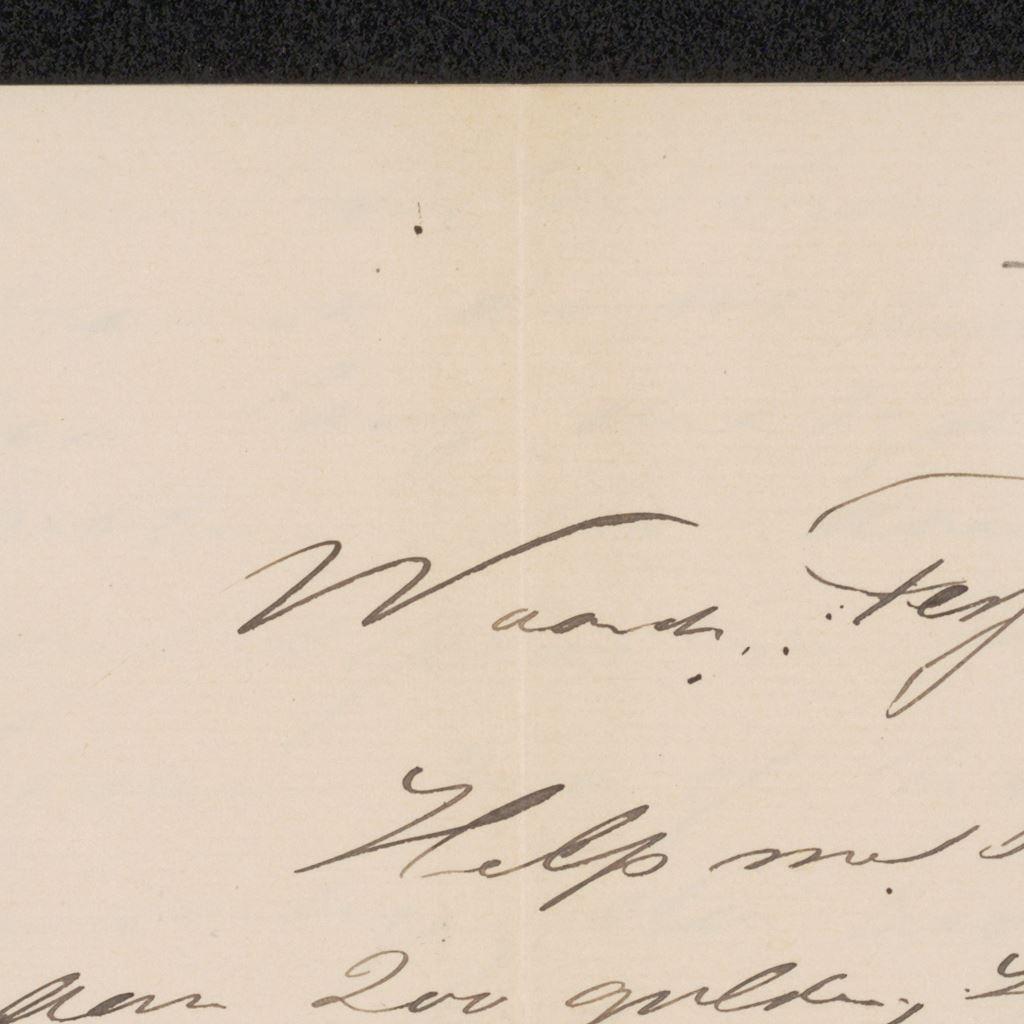 Waarde
Help me
aan 200 gulden,